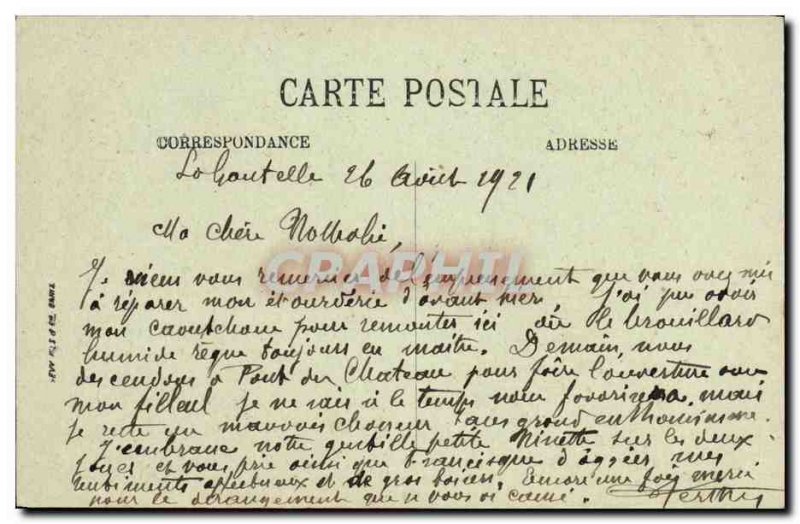 CARTE POSTALE
CORRESPONDANCE ADRESSE
26 Août 1921
Ma chère Nathalie,
Je viens vous remercier de l'empressement que vous avez mis
à réparer mon étourderie d'avant hier, j'ai pu avoir
mon caoutchouc pour remonter ici où le brouillard
humide règne toujours en maître. Demain, nous
descendons à Pont du Chateau pour faire l'ouverture avec
mon filleul je ne sais si le temps nous favorisera, mais
je reste un mauvais chasseur sans grand enthousiasme.
J'embrasse votre gentille petite Ninette sur les deux
joues et vous prie ainsi que Francisque d'agréer, mes
sentiments affectueux et de gros baisers. Encore une fois merci
pour le dérangement que je vous ai causé.
GRAPHTI